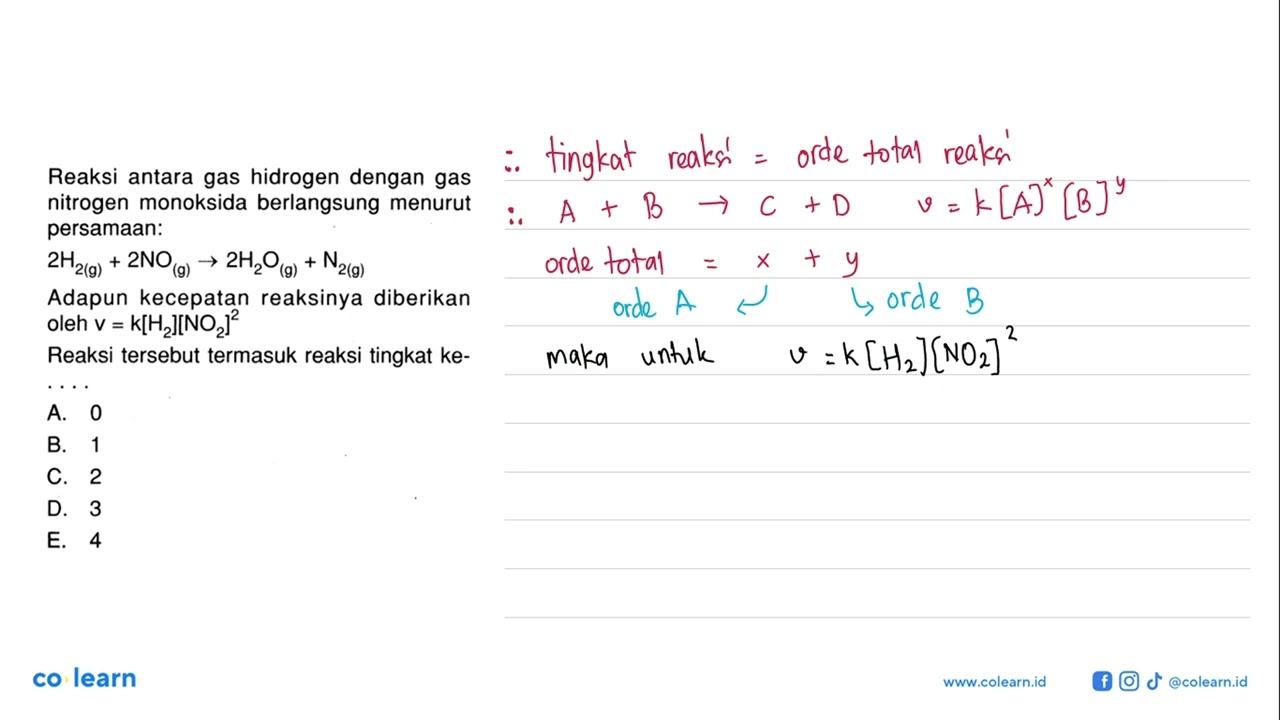 Reaksi antara gas hidrogen dengan gas
nitrogen monoksida berlangsung menurut
persamaan:
2H₂(g) + 2NO(g) → 2H₂O(g) + N₂(g)
Adapun kecepatan reaksinya diberikan
oleh v = k[H₂][NO₂]²
Reaksi tersebut termasuk reaksi tingkat ke-
....
A. 0
B. 1
C. 2
D. 3
E. 4
∴ tingkat reaksi = orde total reaksi
∴ A + B → C + D v = k[A]ˣ[B]ʸ
orde total = x + y
orde A ↙ ↳ orde B
maka untuk v = k[H₂][NO₂]²
co learn
www.colearn.id @colearn.id